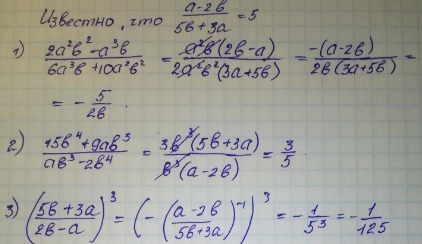 Известно, что (a-2b)/(5b+3a) = 5
1) (2a²b² - a³b)/(6a³b + 10a²b²) = (a²b(2b-a))/(2a²b²(3a+5b)) = (-(a-2b))/(2b(3a+5b)) =
= - 5/(2b).
2) (15b⁴ + 9ab³)/(ab³ - 2b⁴) = (3b³(5b+3a))/(b³(a-2b)) = 3/5.
3) ((5b+3a)/(2b-a))³ = (-((a-2b)/(5b+3a))⁻¹)³ = - 1/5³ = - 1/125